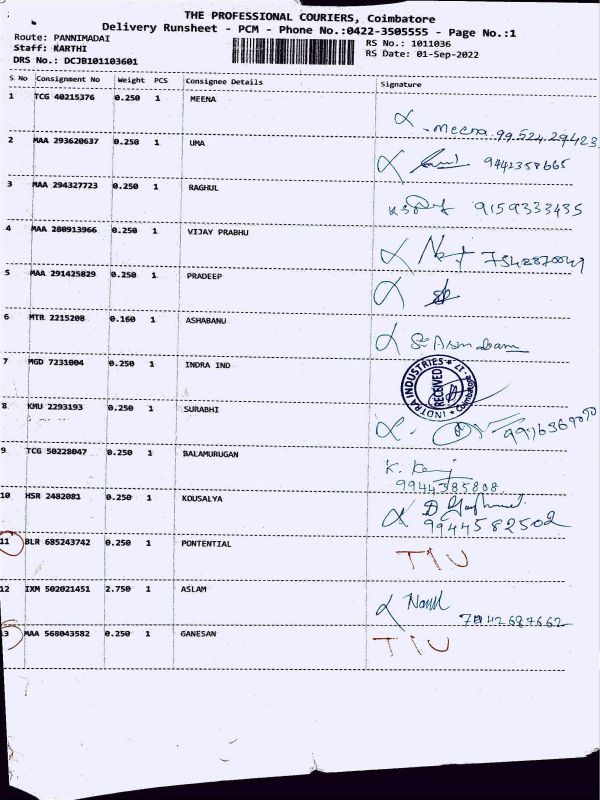 THE PROFESSIONAL COURIERS, Coimbatore
Delivery Runsheet - PCM - Phone No.:0422-3505555 - Page No.:1
Route: PANNIMADAI RS No.: 1011036
Staff: KARTHI RS Date: 01-Sep-2022
DRS No.: DCJB101103601
S No Consignment No Weight PCS Consignee Details Signature
1 TCG 40215376 0.250 1 MEENA
meena 99524 29423
2 MAA 293620637 0.250 1 UMA
9442358665
3 MAA 294327723 0.250 1 RAGHUL
9159333435
4 MAA 280913966 0.250 1 VIJAY PRABHU
5 MAA 291425829 0.250 1 PRADEEP
6 MTR 2215208 0.160 1 ASHABANU
7 MGD 7231004 0.250 1 INDRA IND
INDTRA INDUSTRIES RECEIVED Coimbatore
8 KMU 2293193 0.250 1 SURABHI
9 TCG 50228047 0.250 1 BALAMURUGAN
9944385808
10 HSR 2482081 0.250 1 KOUSALYA
9944582502
11 BLR 685243742 0.250 1 PONTENTIAL
12 IXM 502021451 2.750 1 ASLAM
13 MAA 568043582 0.250 1 GANESAN